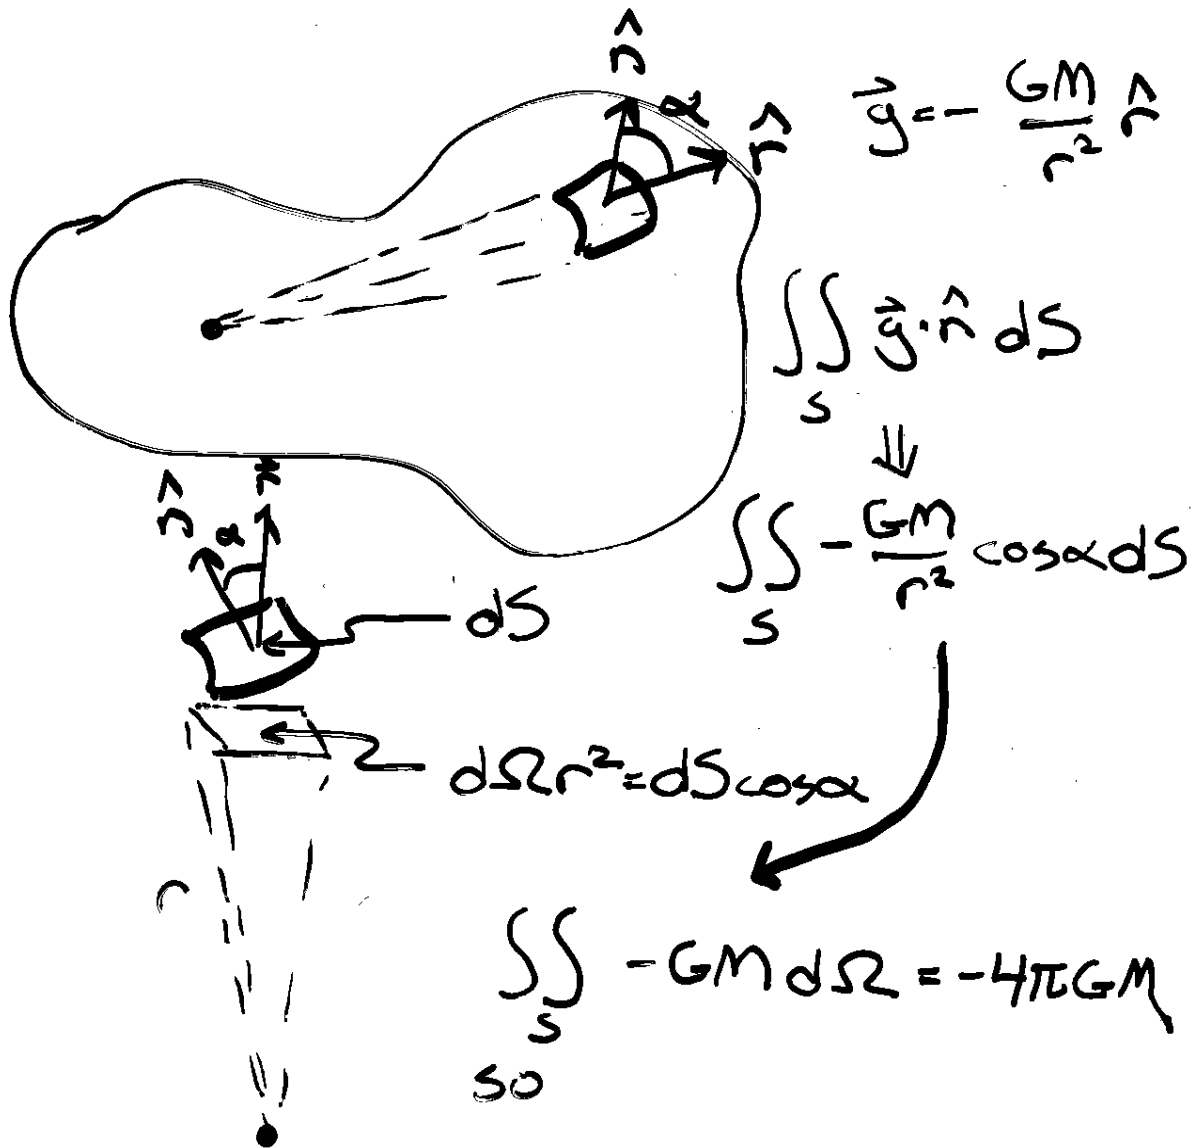 n̂
α
r̂
g⃗ = - GM/r² r̂
∬_S g⃗·n̂ dS
⇓
∬_S - GM/r² cosα dS
n̂
α
r̂
dS
dΩr² = dS cosα
r
∬_S - GM dΩ = -4πGM
so